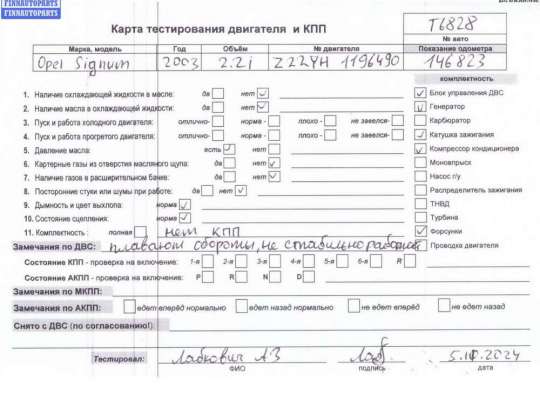 FINNAUTOPARTS
FINNAUTOPARTS
Карта тестирования двигателя и КПП
T6828
№ авто
Марка, модель Год Объём № двигателя Показание одометра
Opel Signum 2003 2.2i Z22YH 1196490 146823
комплектность
1. Наличие охлаждающей жидкости в масле: да нет Блок управления ДВС
2. Наличие масла в охлаждающей жидкости: да нет Генератор
3. Пуск и работа холодного двигателя: отлично- норма - плохо - не завелся- Карбюратор
4. Пуск и работа прогретого двигателя: отлично- норма - плохо - не завелся- Катушка зажигания
5. Давление масла: есть нет Компрессор кондиционера
6. Картерные газы из отверстия масляного щупа: да нет Моновпрыск
7. Наличие газов в расширительном бачке: да нет Насос г/у
8. Посторонние стуки или шумы при работе: да нет Распределитель зажигания
9. Дымность и цвет выхлопа: норма ТНВД
10. Состояние сцепления: норма Турбина
11. Комплектность : полная нет КПП Форсунки
Замечания по ДВС: плавают обороты, не стабильно работает Проводка двигателя
Состояние КПП - проверка на включение: 1-я 2-я 3-я 4-я 5-я 6-я R
Состояние АКПП - проверка на включение: P R N D
Замечания по МКПП:
Замечания по АКПП: едет вперёд нормально едет назад нормально не едет вперёд не едет назад
Снято с ДВС (по согласованию!):
Тестировал: Лабкович А З 5.10.2024
ФИО подпись дата